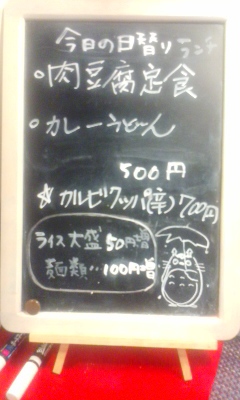 今日の日替りランチ
○肉豆腐定食
○カレーうどん
500円
☆カルビクッパ(辛)700円
ライス大盛50円増
麺類〃100円増